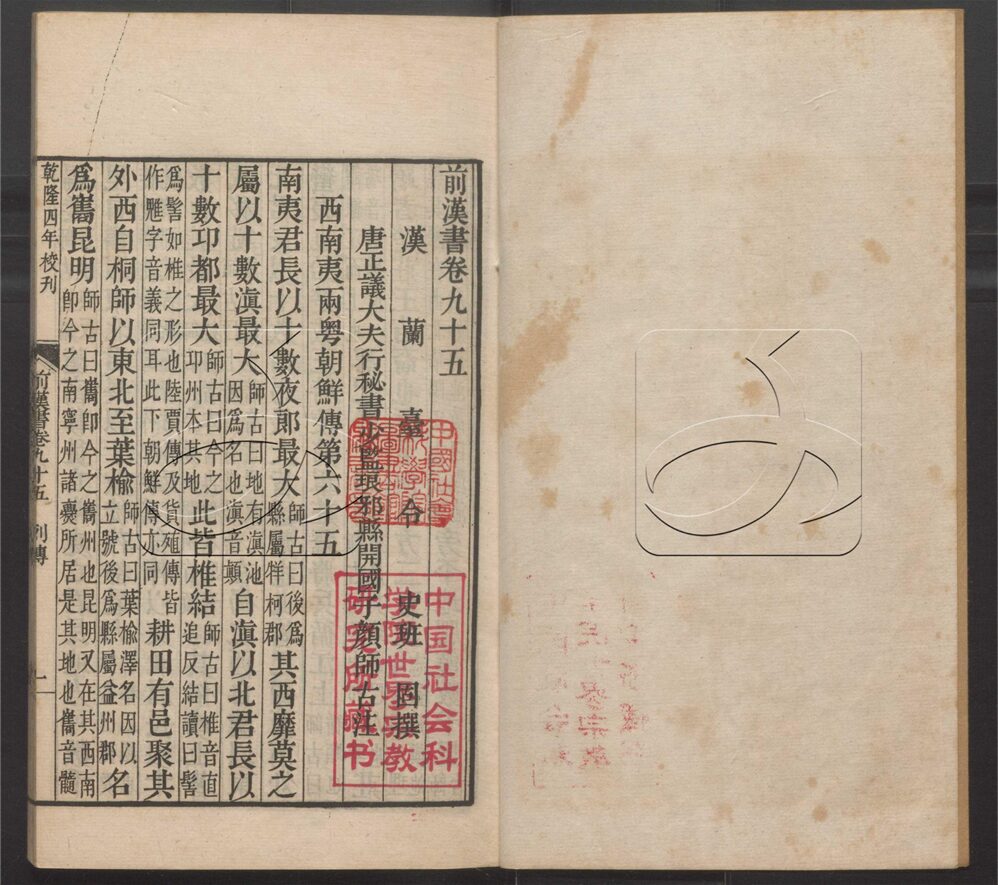 前漢書卷九十五
漢蘭臺令史班固撰
唐正議大夫行秘書少監琅邪縣開國子顏師古注
西南夷兩粤朝鮮傳第六十五
南夷君長以十數夜郎最大師古曰後爲縣屬牂柯郡其西靡莫之
屬以十數滇最大師古曰地有滇池因爲名也滇音顚自滇以北君長以
十數卭都最大師古曰今之卭州本其地此皆椎結師古曰椎音直追反結讀曰髻
爲髻如椎之形也陸賈傳及貨殖傳皆作魋字音義同耳此下朝鮮傳亦同耕田有邑聚其
外西自桐師以東北至葉榆師古曰葉榆澤名因以立號後爲縣屬益州郡名
爲巂昆明師古曰巂即今之巂州也昆明又在其西南即今之南寧州諸爨所居是其地也巂音髓
乾隆四年校刊
前漢書卷九十五 列傳 一
中國社會
科學院
中国社会科
学院世界宗教
研究所藏书